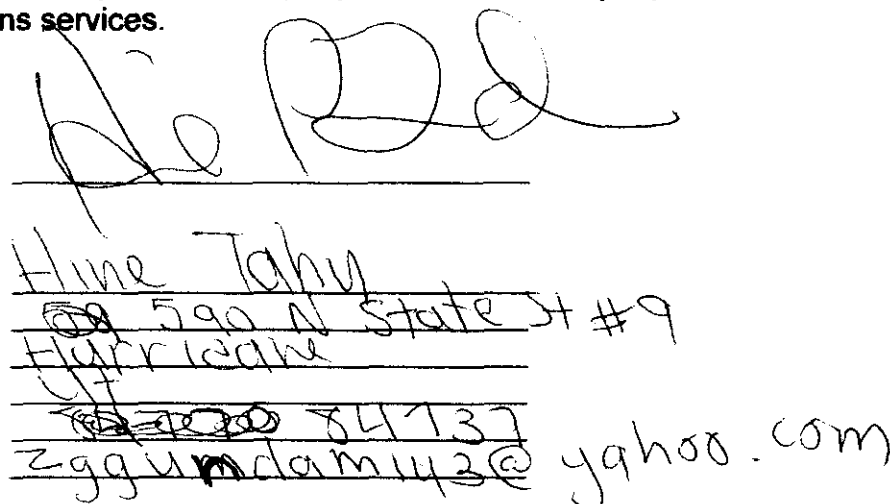 ns services.
Hine Tahy
590 N State St #9
Hurricane
Ut
84737
zggumdamiy3@yahoo.com